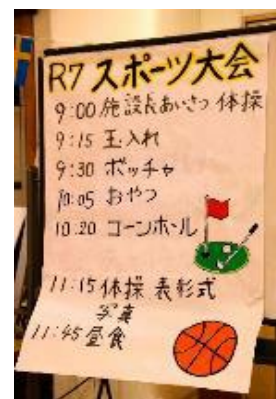 R7 スポーツ大会
9:00 施設長あいさつ 体操
9:15 玉入れ
9:30 ボッチャ
10:05 おやつ
10:20 コーンホール
11:15 体操 表彰式
写真
11:45 昼食